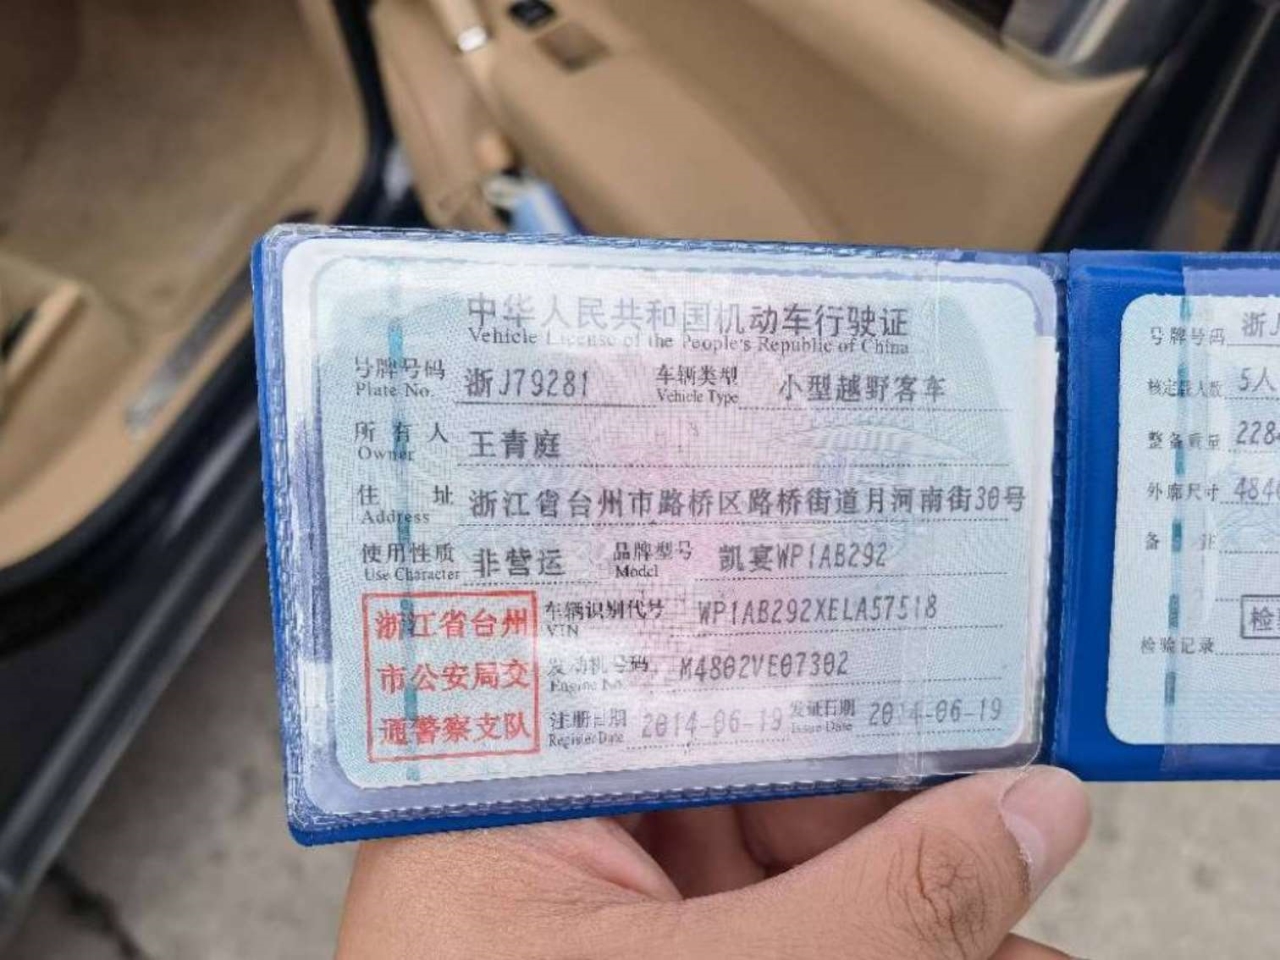 中华人民共和国机动车行驶证
Vehicle License of the People's Republic of China
号牌号码 浙J79281 车辆类型 小型越野客车
Plate No. Vehicle Type
所有人 王青庭
Owner
住址 浙江省台州市路桥区路桥街道月河南街30号
Address
使用性质 非营运 品牌型号 凯宴WP1AB292
Use Character Model
浙江省台州
市公安局交
通警察支队
车辆识别代号 WP1AB292XELA57518
VIN
发动机号码 M4802VE07302
Engine No.
注册日期 2014-06-19 发证日期 2014-06-19
Register Date Issue Date
号牌号码 浙J
核定载人数 5人
整备质量 228
外廓尺寸 484
备注
检
检验记录